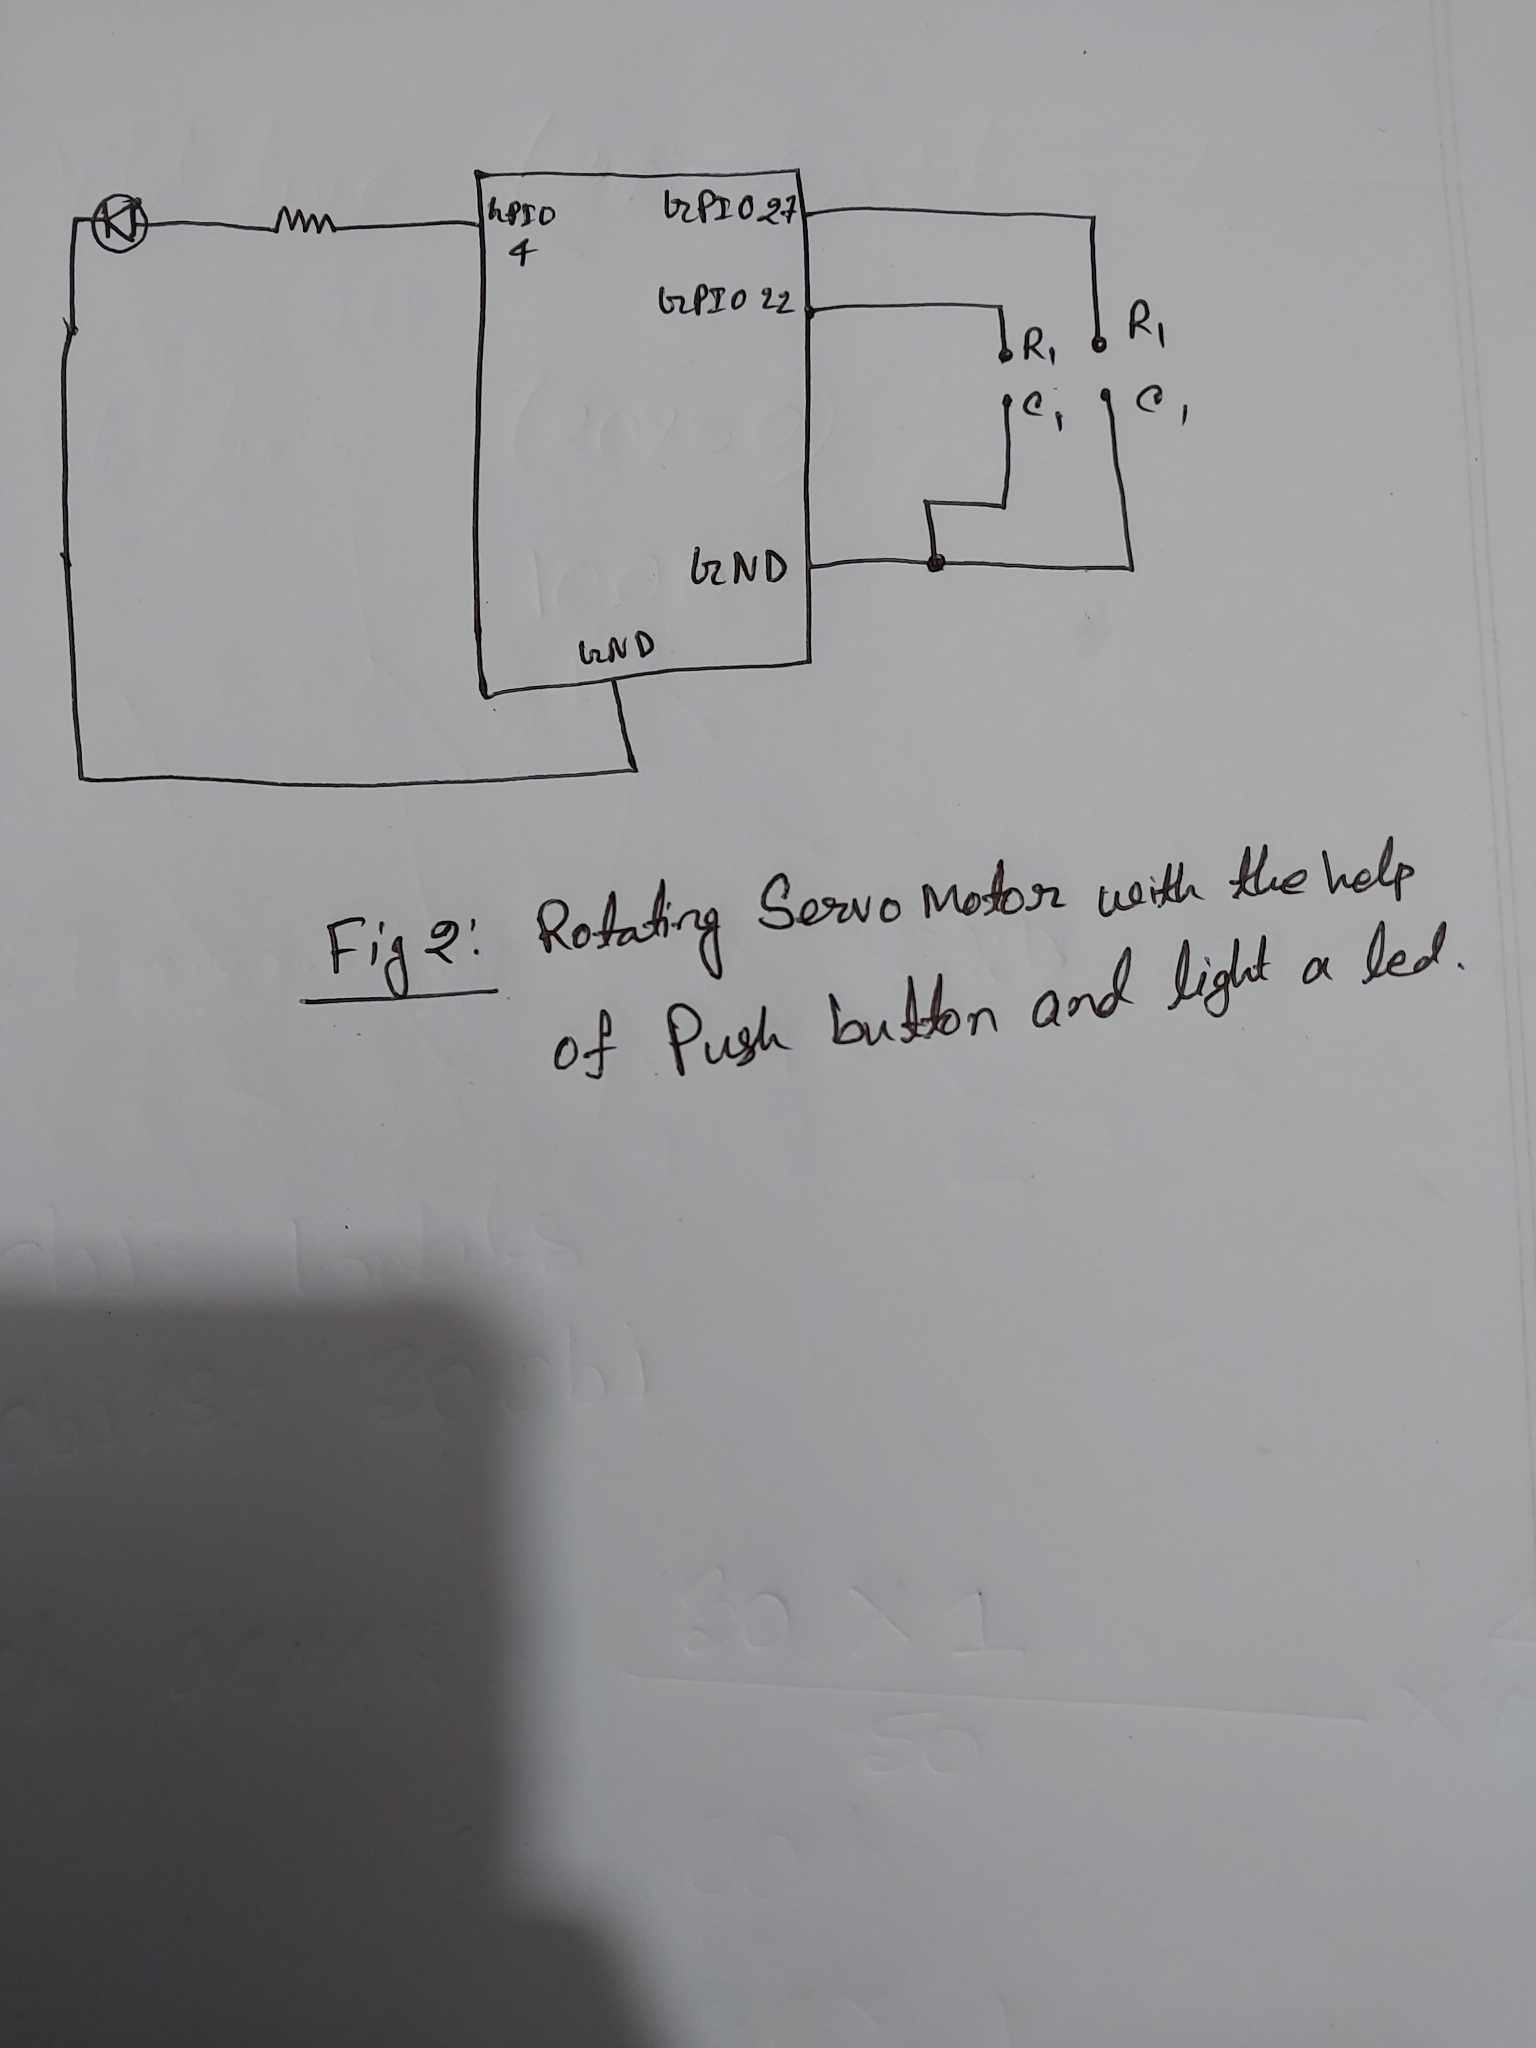 GPIO
4
GPIO 27
GPIO 22
R1
R1
C1
C1
GND
GND
Fig 2: Rotating Servo Motor with the help
of Push button and light a led.